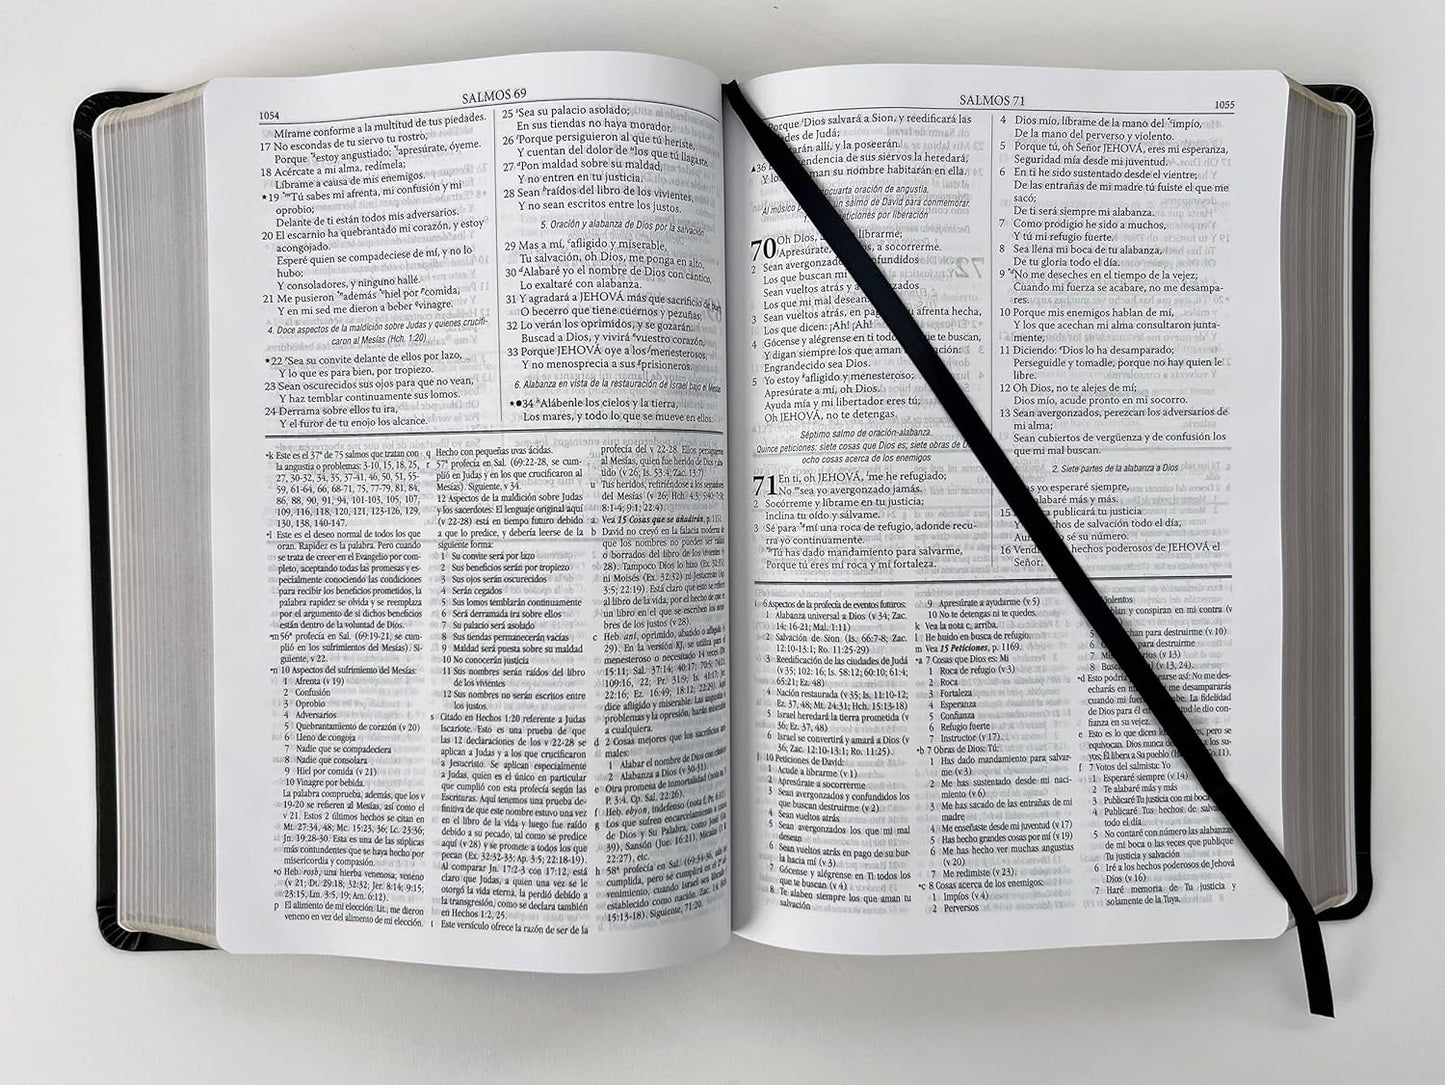 1054
SALMOS 69
Mírame conforme a la multitud de tus piedades.
17 No escondas de tu siervo tu rostro,
Porque estoy angustiado; apresúrate, óyeme.
18 Acércate a mi alma, redímela;
Líbrame a causa de mis enemigos.
★19 Tú sabes mi afrenta, mi confusión y mi
oprobio;
Delante de ti están todos mis adversarios.
20 El escarnio ha quebrantado mi corazón, y estoy
acongojado.
Esperé quien se compadeciese de mí, y no lo
hubo;
Y consoladores, y ninguno hallé.
21 Me pusieron además hiel por comida,
Y en mi sed me dieron a beber vinagre.
4. Doce aspectos de la maldición sobre Judas y quienes crucifi-
caron al Mesías (Hch. 1:20)
★22 Sea su convite delante de ellos por lazo,
Y lo que es para bien, por tropiezo.
23 Sean oscurecidos sus ojos para que no vean,
Y haz temblar continuamente sus lomos.
24 Derrama sobre ellos tu ira,
Y el furor de tu enojo los alcance.
25 Sea su palacio asolado;
En sus tiendas no haya morador.
26 Porque persiguieron al que tú heriste,
Y cuentan del dolor de los que tú llagaste.
27 Pon maldad sobre su maldad,
Y no entren en tu justicia.
28 Sean raídos del libro de los vivientes,
Y no sean escritos entre los justos.
5. Oración y alabanza de Dios por la salvación
29 Mas a mí, afligido y miserable,
Tu salvación, oh Dios, me ponga en alto.
30 Alabaré yo el nombre de Dios con cántico,
Lo exaltaré con alabanza.
31 Y agradará a JEHOVÁ más que sacrificio de buey
O becerro que tiene cuernos y pezuñas;
32 Lo verán los oprimidos, y se gozarán.
Buscad a Dios, y vivirá vuestro corazón,
33 Porque JEHOVÁ oye a los menesterosos,
Y no menosprecia a sus prisioneros.
6. Alabanza en vista de la restauración de Israel bajo el Mesías
★●34 Alábenle los cielos y la tierra,
Los mares, y todo lo que se mueve en ellos.
k Este es el 37° de 75 salmos que tratan con
la angustia o problemas: 3-10, 15, 18, 25,
27, 30-32, 34, 35, 37-41, 46, 50, 51, 55-
59, 61-64, 66, 68-71, 75, 77-79, 81, 84,
86, 88, 90, 91, 94, 101-103, 105, 107,
109, 116, 118, 120, 121, 123-126, 129,
130, 138, 140-147.
l Este es el deseo normal de todos los que
oran. Rapidez es la palabra. Pero cuando
se trata de creer en el Evangelio por com-
pleto, aceptando todas las promesas y es-
pecialmente conociendo las condiciones
para recibir los beneficios prometidos, la
palabra rapidez se olvida y se reemplaza
por el argumento de si dichos beneficios
están dentro de la voluntad de Dios.
m 56ª profecía en Sal. (69:19-21, se cum-
plió en los sufrimientos del Mesías). Si-
guiente, v 22.
n 10 Aspectos del sufrimiento del Mesías:
1 Afrenta (v 19)
2 Confusión
3 Oprobio
4 Adversarios
5 Quebrantamiento de corazón (v 20)
6 Lleno de congoja
7 Nadie que se compadeciera
8 Nadie que consolara
9 Hiel por comida (v 21)
10 Vinagre por bebida.
La palabra comprueba, además, que los v
19-20 se refieren al Mesías, así como el
v 21. Estos 2 últimos hechos se citan en
Mt. 27:34, 48; Mc. 15:23, 36; Lc. 23:36;
Jn. 19:28-30. Esta es una de las súplicas
más contundentes que se haya hecho por
misericordia y compasión.
o Heb. rosh, una hierba venenosa; veneno
(v 21; Dt. 29:18; 32:32; Jer. 8:14; 9:15;
23:15; Lm. 3:5, 19; Am. 6:12).
p El alimento de mi elección: Lit., me dieron
veneno en vez del alimento de mi elección.
q Hecho con pequeñas uvas ácidas.
r 57ª profecía en Sal. (69:22-28, se cum-
plió en Judas y en los que crucificaron al
Mesías). Siguiente, v 34.
12 Aspectos de la maldición sobre Judas
y los sacerdotes: El lenguaje original aquí
(v 22-28) está en tiempo futuro debido
a que lo predice, y debería leerse de la
siguiente forma:
1 Su convite será por lazo
2 Sus beneficios serán por tropiezo
3 Sus ojos serán oscurecidos
4 Serán cegados
5 Sus lomos temblarán continuamente
6 Será derramada ira sobre ellos
7 Su palacio será asolado
8 Sus tiendas permanecerán vacías
9 Maldad será puesta sobre su maldad
10 No conocerán justicia
11 Sus nombres serán raídos del libro
de los vivientes
12 Sus nombres no serán escritos entre
los justos.
s Citado en Hechos 1:20 referente a Judas
Iscariote. Esto es una prueba de que
las 12 declaraciones de los v 22-28 se
aplican a Judas y a los que crucificaron
a Jesucristo. Se aplican especialmente
a Judas, quien es el único en particular
que cumplió con esta profecía según las
Escrituras. Aquí tenemos una prueba de-
finitiva de que este nombre estuvo una vez
en el libro de la vida y luego fue raído
debido a su pecado, tal como se predice
aquí (v 28) y se promete a todos los que
pecan (Ex. 32:32-33; Ap. 3:5; 22:18-19).
Al comparar Jn. 17:2-3 con 17:12, está
claro que Judas, a quien una vez se le
otorgó la vida eterna, la perdió debido a
la transgresión, como se declara también
en Hechos 1:2, 25.
t Este versículo ofrece la razón de ser de la
profecía del v 22-28. Ellos persiguieron
al Mesías, quien fue herido de Dios y aba-
tido (v 26; Is. 53:4; Zac. 13:7).
u Tus heridos, refiriéndose a los seguidores
del Mesías (v 26; Hch. 4:3; 5:40; 7:8;
8:1-4; 9:1; 22:4).
a Vea 15 Cosas que se añadirán, p. 1151.
b David no creyó en la falacia moderna de
que los nombres no pueden ser raídos
o borrados del libro de los vivientes (v
28). Tampoco Dios lo hizo (Ex. 32:33);
ni Moisés (Ex. 32:32) ni Jesucristo (Ap.
3:5; 22:19). Está claro que esto se refiere
al libro de la vida, por el hecho de que es
un libro en el que se escriben los nom-
bres de los justos (v 28).
c Heb. ani, oprimido, abatido o afligido (v
29). En la versión KJ, se utiliza para
menesteroso o necesitado 14 veces (Dt.
15:11; Sal. 37:14; 40:17; 70:5; 74:21;
109:16, 22; Pr. 31:9; Is. 41:17; Jer.
22:16; Ez. 16:49; 18:12; 22:29);
dice afligido y miserable. Las angustias o
problemas y la opresión, harán miserable
a cualquiera.
d 2 Cosas mejores que los sacrificios ani-
males:
1 Alabar el nombre de Dios con cántico
2 Alabanza a Dios (v 30-31)
e Otra promesa de inmortalidad
P. 3:4. Cp. Sal. 22:26).
f Heb. ebyon, indefenso
g Los que sufren encarcelamiento a causa
de Dios y Su Palabra, como José
39), Sansón (Jue. 16:21), Micaías
22:27), etc.
h 58ª profecía en Sal. (69:34-36,
cumplida, pero se cumplirá en el
venimiento, cuando Israel sea
establecido como nación, Zac. 14;
15:13-18). Siguiente, 71:20.
SALMOS 71
1055
Porque Dios salvará a Sion, y reedificará las
des de Judá;
arán allí, y la poseerán.
▲36 endencia de sus siervos la heredará,
Y los man su nombre habitarán en ella.
cuarta oración de angustia.
Al músico p n salmo de David para conmemorar.
eticiones por liberación
70 Oh Dios, a librarme;
Apresúrate, s, a socorrerme.
2 Sean avergonzado onfundidos
Los que buscan mi
Sean vueltos atrás y a gonzados
Los que mi mal desean
3 Sean vueltos atrás, en pag afrenta hecha,
Los que dicen: ¡Ah! ¡Ah!
4 Gócense y alégrense en ti todo que te buscan,
Y digan siempre los que aman ación:
Engrandecido sea Dios.
5 Yo estoy afligido y menesteroso;
Apresúrate a mí, oh Dios.
Ayuda mía y mi libertador eres tú;
Oh JEHOVÁ, no te detengas.
Séptimo salmo de oración-alabanza.
Quince peticiones; siete cosas que Dios es; siete obras de D
ocho cosas acerca de los enemigos
71 En ti, oh JEHOVÁ, me he refugiado;
No sea yo avergonzado jamás.
2 Socórreme y líbrame en tu justicia;
Inclina tu oído y sálvame.
3 Sé para mí una roca de refugio, adonde recu-
rra yo continuamente.
Tú has dado mandamiento para salvarme,
Porque tú eres mi roca y mi fortaleza.
4 Dios mío, líbrame de la mano del impío,
De la mano del perverso y violento.
5 Porque tú, oh Señor JEHOVÁ, eres mi esperanza,
Seguridad mía desde mi juventud.
6 En ti he sido sustentado desde el vientre;
De las entrañas de mi madre tú fuiste el que me
sacó;
De ti será siempre mi alabanza.
7 Como prodigio he sido a muchos,
Y tú mi refugio fuerte.
8 Sea llena mi boca de tu alabanza,
De tu gloria todo el día.
9 No me deseches en el tiempo de la vejez;
Cuando mi fuerza se acabare, no me desampa-
res.
10 Porque mis enemigos hablan de mí,
Y los que acechan mi alma consultaron junta-
mente,
11 Diciendo: Dios lo ha desamparado;
Perseguidle y tomadle, porque no hay quien le
libre.
12 Oh Dios, no te alejes de mí;
Dios mío, acude pronto en mi socorro.
13 Sean avergonzados, perezcan los adversarios de
mi alma;
Sean cubiertos de vergüenza y de confusión los
que mi mal buscan.
2. Siete partes de la alabanza a Dios
as yo esperaré siempre,
alabaré más y más.
15 publicará tu justicia
Y hechos de salvación todo el día,
Aun sé su número.
16 Vend hechos poderosos de JEHOVÁ el
Señor;
i 6 Aspectos de la profecía de eventos futuros:
1 Alabanza universal a Dios (v 34; Zac.
14; 16-21; Mal. 1:11)
2 Salvación de Sion (Is. 66:7-8; Zac.
12:10-13:1; Ro. 11:25-29)
3 Reedificación de las ciudades de Judá
(v 35; 102: 16; Is. 58:12; 60:10; 61:4;
65:21; Ez. 48)
4 Nación restaurada (v 35; Is. 11:10-12;
Ez. 37, 48; Mt. 24:31; Hch. 15:13-18)
5 Israel heredará la tierra prometida (v
36; Ez. 37, 48)
6 Israel se convertirá y amará a Dios (v
36; Zac. 12:10-13:1; Ro. 11:25).
j 10 Peticiones de David:
1 Acude a librarme (v 1)
2 Apresúrate a socorrerme
3 Sean avergonzados y confundidos los
que buscan destruirme (v 2)
4 Sean vueltos atrás
5 Sean avergonzados los que mi mal
desean
6 Sean vueltos atrás en pago de su bur-
la hacia mí (v 3)
7 Gócense y alégrense en Ti todos los
que te buscan (v 4)
8 Te alaben siempre los que aman tu
salvación
9 Apresúrate a ayudarme (v 5)
10 No te detengas ni te quedes.
k Vea la nota c, arriba.
l He huido en busca de refugio.
m Vea 15 Peticiones, p. 1169.
a 7 Cosas que Dios es: Mi
1 Roca de refugio (v 3)
2 Roca
3 Fortaleza
4 Esperanza
5 Confianza
6 Refugio fuerte
7 Instructor (v 17).
b 7 Obras de Dios: Tú:
1 Has dado mandamiento para salvar-
me (v 3)
2 Me has sustentado desde mi naci-
miento (v 6)
3 Me has sacado de las entrañas de mi
madre
4 Me enseñaste desde mi juventud (v 17)
5 Has hecho grandes cosas por mí (v 19)
6 Me has hecho ver muchas angustias
(v 20)
7 Me redimiste (v 23).
c 8 Cosas acerca de los enemigos:
1 Impíos (v 4)
2 Perversos
Violentos
blan y conspiran en mi contra (v
5 chan para destruirme (v 10)
6
7 Mi rios (v 13)
8 Busc l (v 13, 24).
d Esto podría arse así: No me des-
echarás en mi me desampararás
cuando mi fue . La fidelidad
de Dios para el tud le dio con-
fianza en su vejez.
e Esto es lo que dicen , pero se
equivocan. Dios nunca a los su-
yos; Él libera a Su pueblo (He 11).
f 7 Votos del salmista: Yo
1 Esperaré siempre (v 14)
2 Te alabaré más y más
3 Publicaré Tu justicia con mi boca
4 Publicaré Tus hechos de salva
todo el día
5 No contaré con número las alabanzas
de mi boca o las veces que publique
Tu justicia y salvación
6 Iré a los hechos poderosos de Jehová
Dios (v 16)
7 Haré memoria de Tu justicia y
solamente de la Tuya.